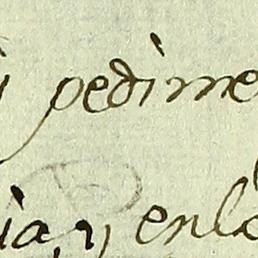 pedime
ia, y enla